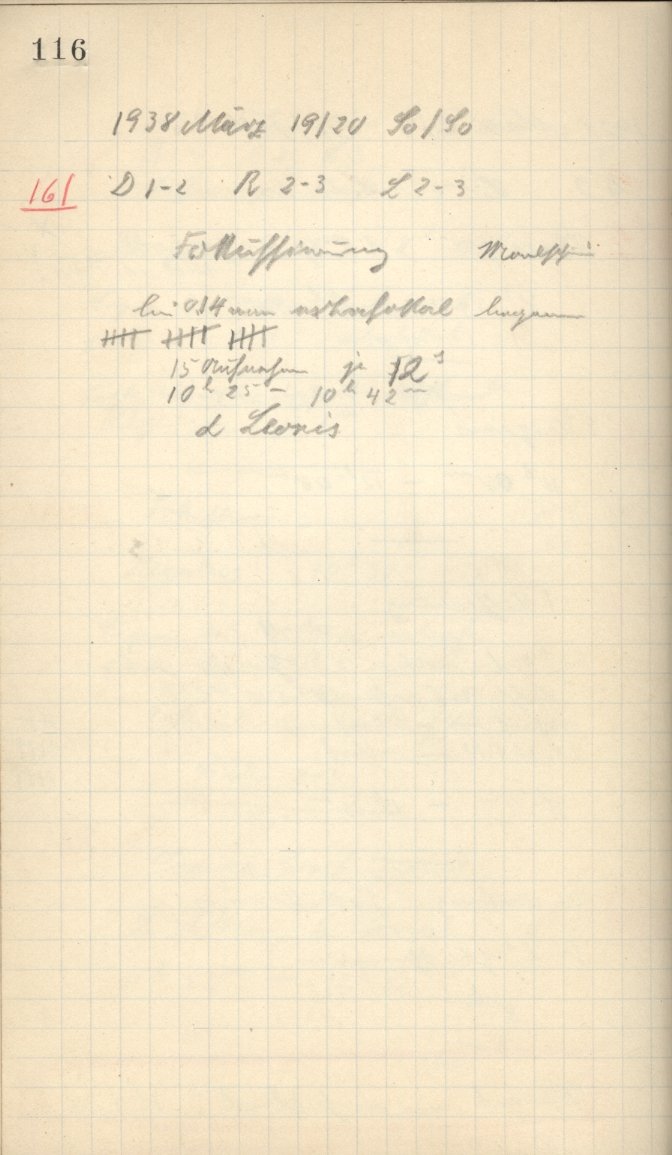 116
1938 März 19/20 So/So
161 D 1-2 R 2-3 L 2-3
Fokussierung Mondschein
bei 0.14 mm extrafokal begonnen
𝍸 𝍸 𝍸
15 Aufnahmen je 12ˢ
10ʰ 25 – 10ʰ 42ᵐ
α Leonis